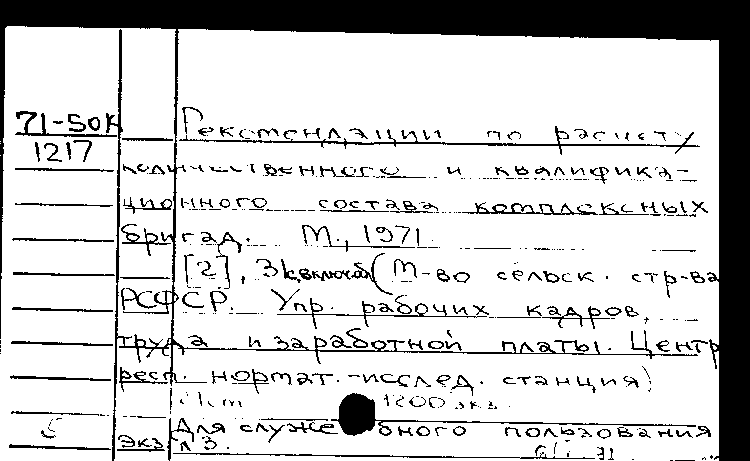 71-50К
1217
Рекомендации по расчету
количественного и квалифика-
ционного состава комплексных
бригад. М., 1971.
[2], 31 с. включ. обл. (М-во сельск. стр-ва
РСФСР. Упр. рабочих кадров,
труда и заработной платы. Центр
респ. нормат.-исслед. станция)
1200 экз.
5
Для служебного пользования
экз. № 3.